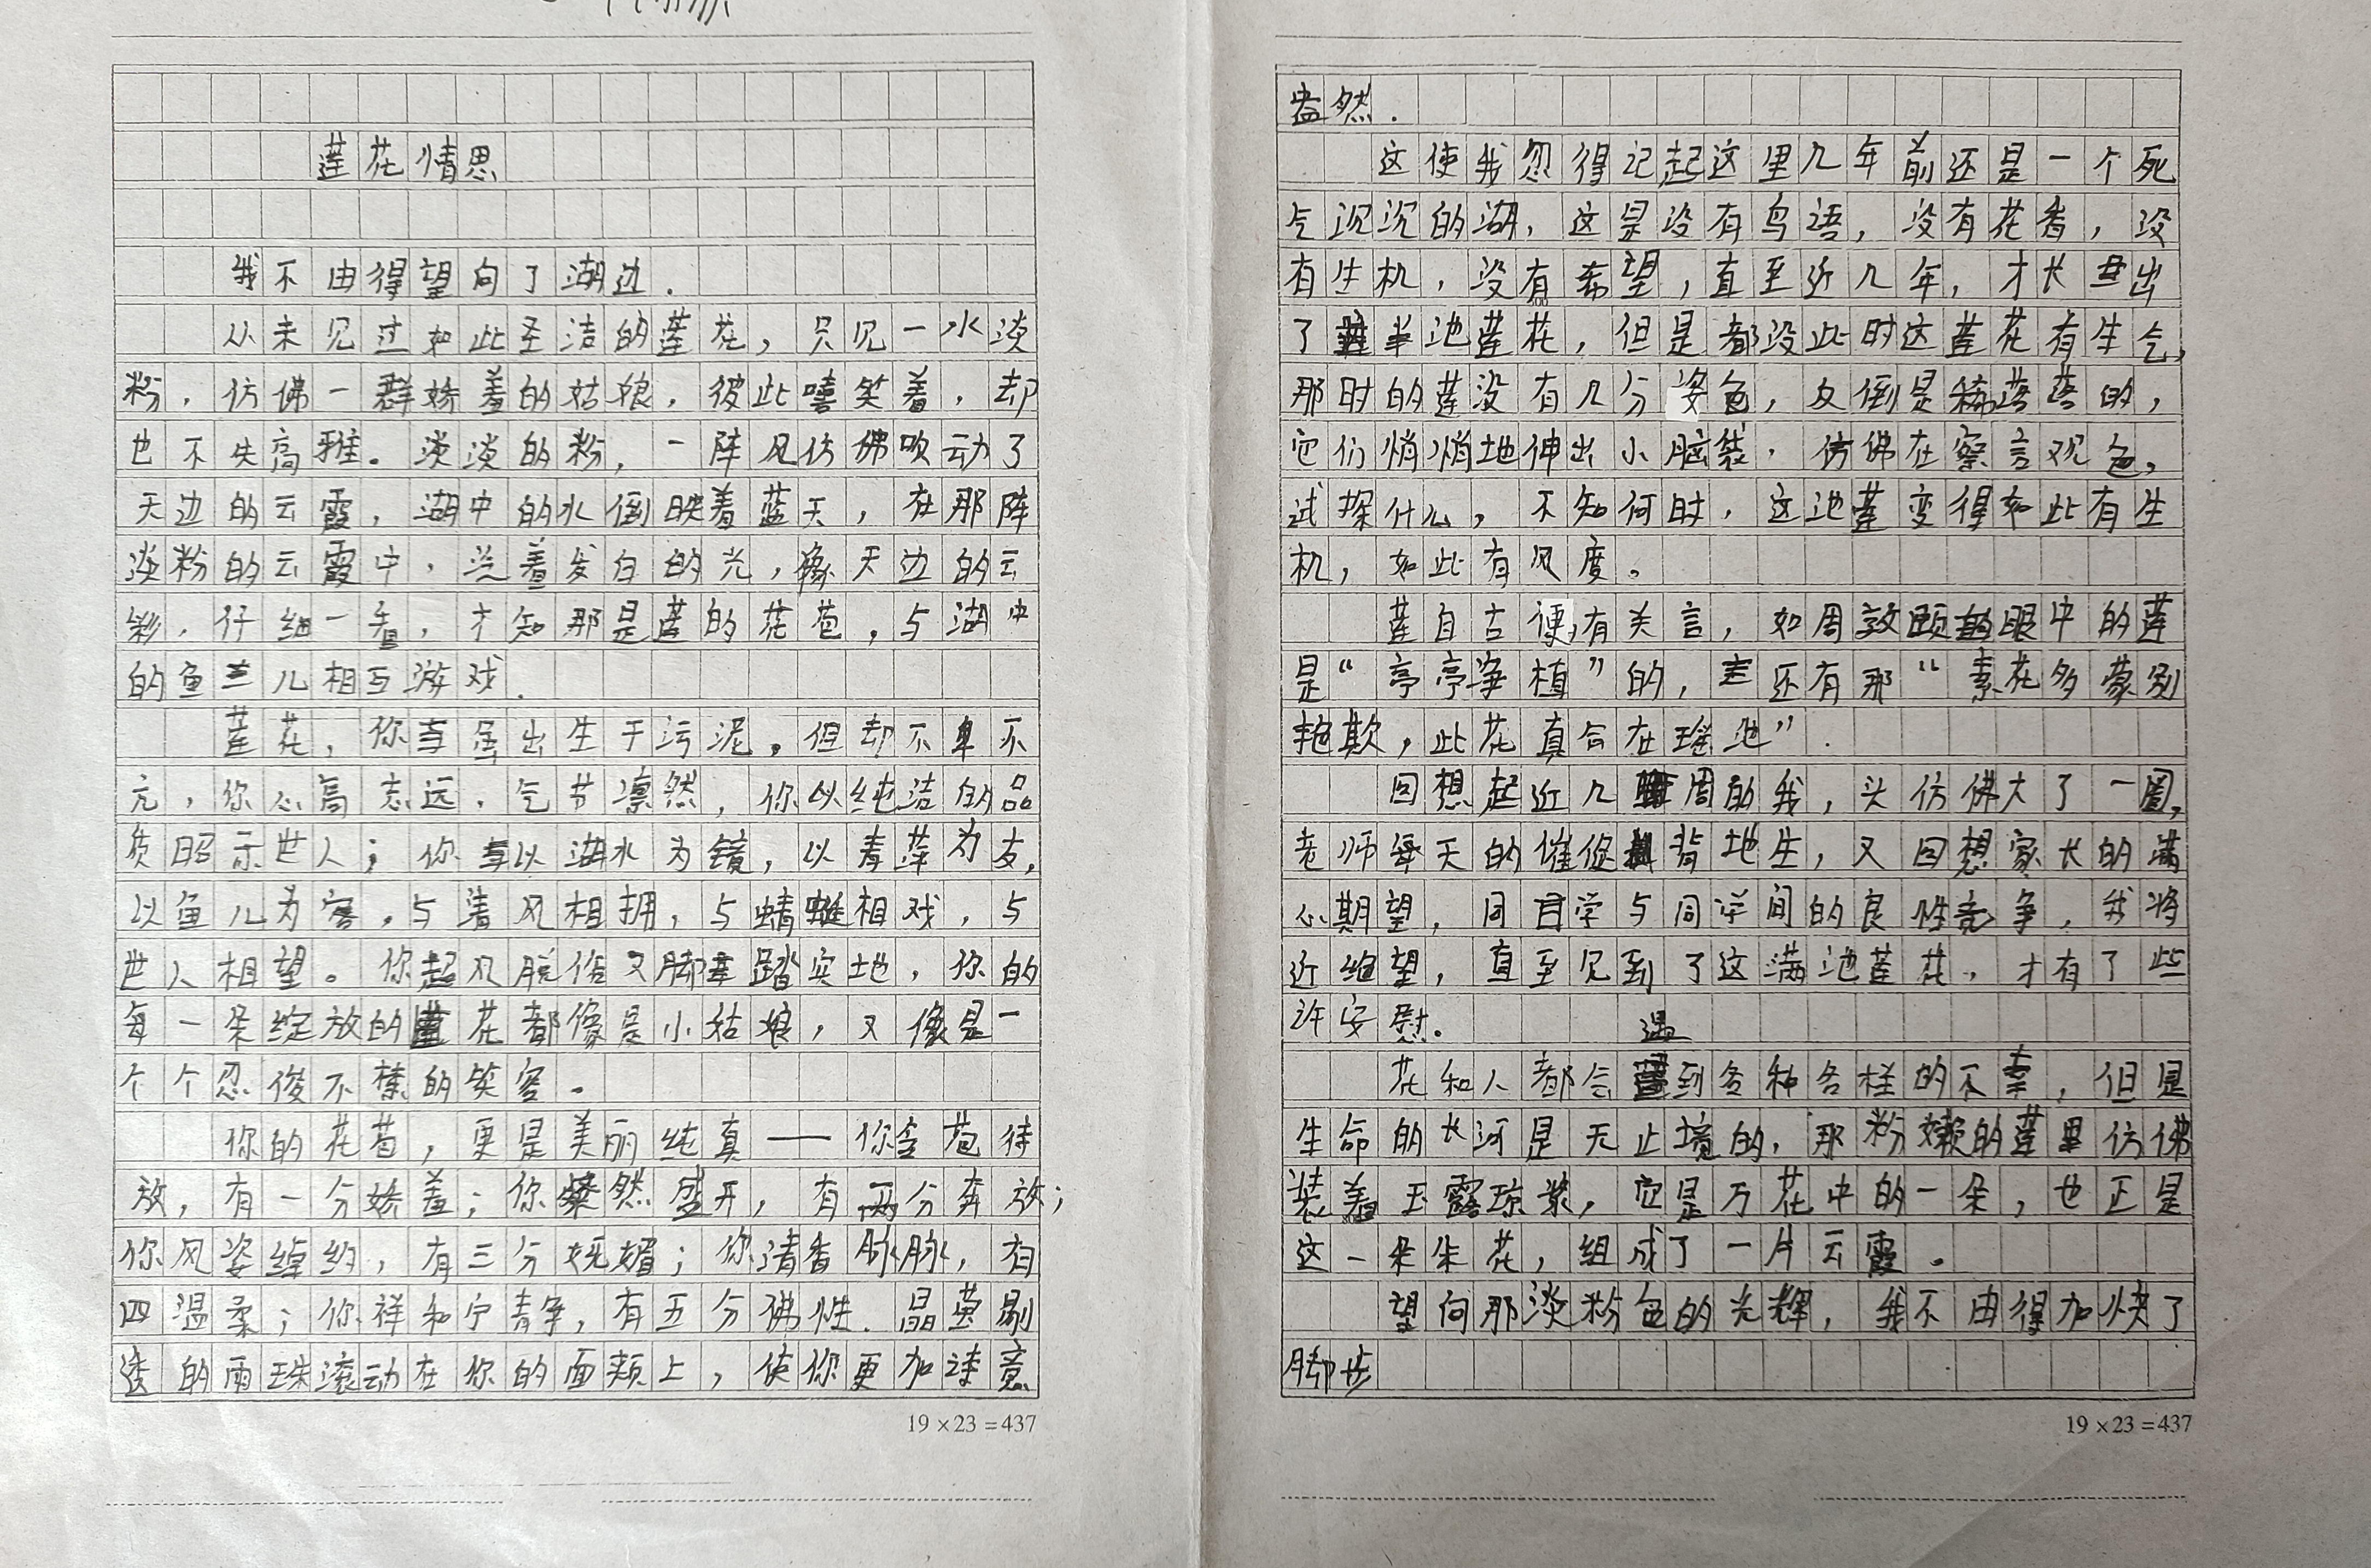 莲花情思
我不由得望向了湖边.
从未见过如此圣洁的莲花，只见一水淡
粉，仿佛一群娇羞的姑娘，彼此嘻笑着，却
也不失高雅。淡淡的粉，一阵风仿佛吹动了
天边的云霞，湖中的水倒映着蓝天，在那阵
淡粉的云霞中，泛着发白的光，像天边的云
彩，仔细一看，才知那是莲的花苞，与湖中
的鱼儿相互游戏.
莲花，你虽出生于污泥，但却不卑不
亢，你心高志远，气节凛然，你以纯洁的品
质昭示世人；你以湖水为镜，以青萍为友，
以鱼儿为客，与清风相拥，与蜻蜓相戏，与
世人相望。你超凡脱俗又脚踏实地，你的
每一朵绽放的花都像是小姑娘，又像是一
个个忍俊不禁的笑容。
你的花苞，更是美丽纯真——你含苞待
放，有一分娇羞；你灿然盛开，有两分奔放；
你风姿绰约，有三分妩媚；你清香脉脉，有
四温柔；你祥和宁静，有五分佛性.晶莹剔
透的雨珠滚动在你的面颊上，使你更加诗意
盎然.
这使我忽得记起这里几年前还是一个死
气沉沉的湖，这是没有鸟语，没有花香，没
有生机，没有希望，直至近几年，才长出
了半池莲花，但是都没此时这莲花有生气，
那时的莲没有几分姿色，反倒是稀落落的，
它们悄悄地伸出小脑袋，仿佛在察言观色，
试探什么，不知何时，这池莲变得如此有生
机，如此有风度。
莲自古便有关言，如周敦颐眼中的莲
是“亭亭净植”的，还有那“素花多蒙别
艳欺，此花真合在瑶池”.
回想起近几周的我，头仿佛大了一圈，
老师每天的催促背地生，又回想家长的满
心期望，同学与同学间的良性竞争，我将
近绝望，直至见到了这满池莲花，才有了些
许安慰。
花和人都会遇到各种各样的不幸，但是
生命的长河是无止境的，那粉嫩的莲里仿佛
装着玉露琼浆，它是万花中的一朵，也正是
这一朵朵花，组成了一片云霞。
望向那淡粉色的光辉，我不由得加快了
脚步
19×23=437
19×23=437